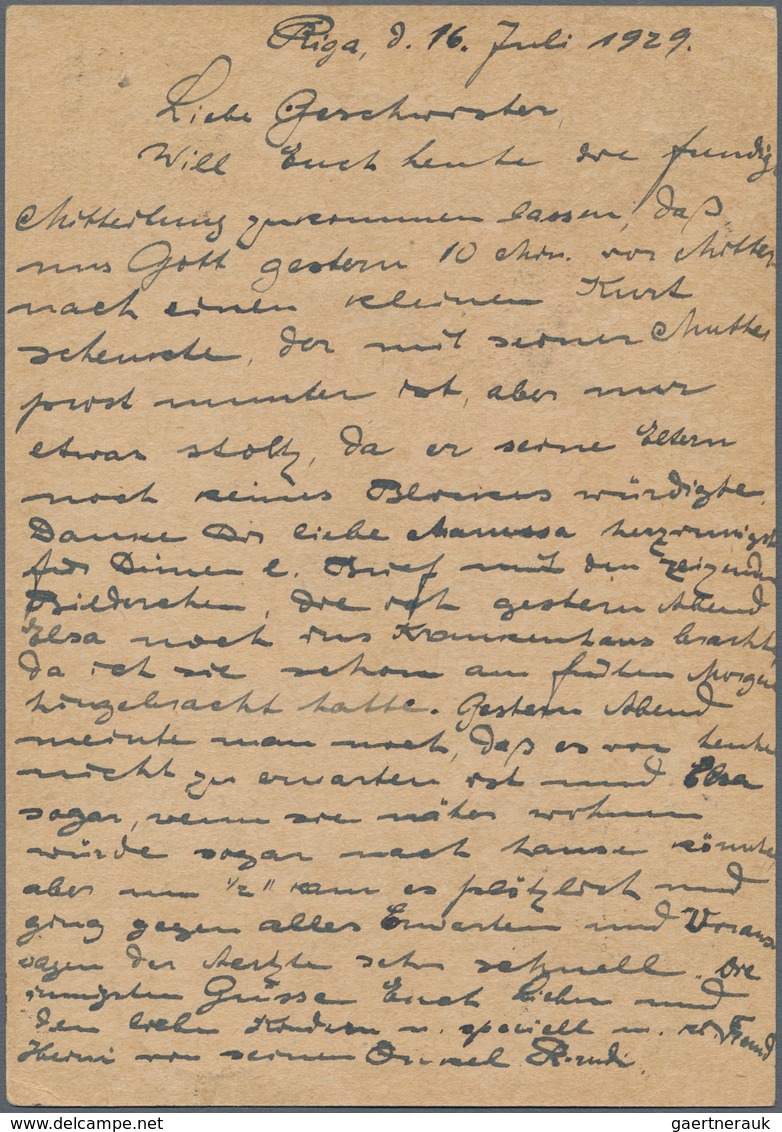 Riga, d. 16. Juli 1929.
Liebe Geschwister,
Will Euch heute die freudige
Mitteilung zukommen lassen, daß
uns Gott gestern 10 Min. vor Mitter
nach einen kleinen Kurt
schenkte, der mit seiner Mutter
prost munter ist, aber nur
etwas stoltz, da er seine Eltern
noch keines Blickes würdigte.
Danke Dir liebe herzinnigst
für Deinen l. Brief mit den reizenden
Bilderchen, die ich gestern Abend
Elsa noch ins Krankenhaus brachte,
da ich sie schon am frühen Morgen
hingebracht hatte. Gestern Abend
meinte man noch, daß es vor heute
nicht zu erwarten ist und Elsa
sogar, wenn sie näher wohnen
würde sogar nach hause könnte,
aber um 1/2 11 kam es plötzlich und
ging gegen alles Erwarten und Voraus
sagen der Aertzte sehr schnell. Die
innigsten Grüsse Euch lieben und
den lieben Kindern u. speciell m. kl. Freund
Heini von seinem Onkel Rudi.
gaertnerauk